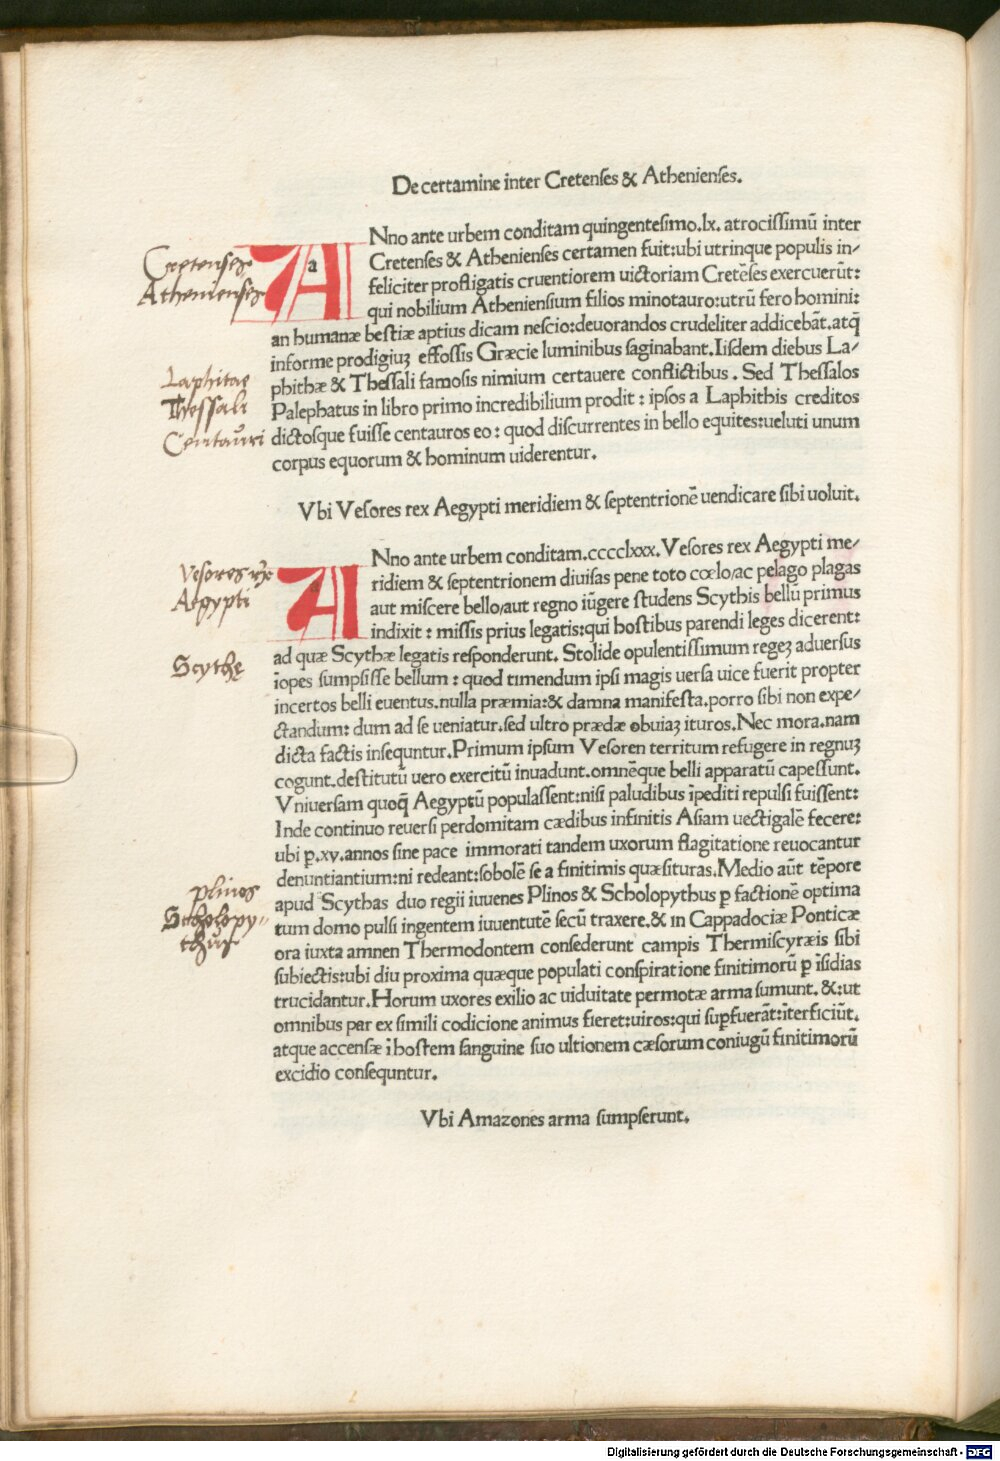 De certamine inter Cretenses & Athenienses.
ANno ante urbem conditam quingentesimo.lx. atrocissimū inter
Cretenses & Athenienses certamen fuit:ubi utrinque populis in/
feliciter profligatis cruentiorem uictoriam Cretēses exercuerūt:
qui nobilium Atheniensium filios minotauro:utrū fero homini:
an humanæ bestiæ aptius dicam nescio:deuorandos crudeliter addicebāt.atq̄
informe prodigiuꝫ effossis Græcie luminibus saginabant.Iisdem diebus La/
phithæ & Thessali famosis nimium certauere conflictibus. Sed Thessalos
Palephatus in libro primo incredibilium prodit: ipsos a Laphithis creditos
dictosque fuisse centauros eo: quod discurrentes in bello equites:ueluti unum
corpus equorum & hominum uiderentur.
Cretenses
Athenienses
Laphitae
Thessali
Centauri
Vbi Vesores rex Aegypti meridiem & septentrionē uendicare sibi uoluit.
ANno ante urbem conditam.cccclxxx.Vesores rex Aegypti me/
ridiem & septentrionem diuisas pene toto cœlo/ac pelago plagas
aut miscere bello/aut regno iūgere studens Scythis bellū primus
indixit: missis prius legatis:qui hostibus parendi leges dicerent:
ad quæ Scythæ legatis responderunt. Stolide opulentissimum regeꝫ aduersus
īopes sumpsisse bellum: quod timendum ipsi magis uersa uice fuerit propter
incertos belli euentus.nulla præmia:& damna manifesta.porro sibi non expe/
ctandum: dum ad se ueniatur.sed ultro prædæ obuiaꝫ ituros.Nec mora.nam
dicta factis insequntur.Primum ipsum Vesoren territum refugere in regnuꝫ
cogunt.destitutū uero exercitū inuadunt.omnēque belli apparatū capessunt.
Vniuersam quoq̄ Aegyptū populassent:nisi paludibus īpediti repulsi fuissent:
Inde continuo reuersi perdomitam cædibus infinitis Asiam uectigalē fecere:
ubi ꝑ.xv.annos sine pace immorati tandem uxorum flagitatione reuocantur
denuntiantium:ni redeant:sobolē se a finitimis quæsituras.Medio aūt tēpore
apud Scythas duo regii iuuenes Plinos & Scholopythus ꝑ factionē optima
tum domo pulsi ingentem iuuentutē secū traxere.& in Cappadociæ Ponticæ
ora iuxta amnen Thermodontem consederunt campis Thermiscyræis sibi
subiectis:ubi diu proxima quæque populati conspiratione finitimorū ꝑ īsidias
trucidantur.Horum uxores exilio ac uiduitate permotæ arma sumunt.&:ut
omnibus par ex simili codicione animus fieret:uiros:qui suꝑfuerāt:īterficiūt.
atque accensæ ī hostem sanguine suo ultionem cæsorum coniugū finitimorū
excidio consequntur.
Vesores rex
Aegypti
Scythę
plinos
Scholopy=
thus
Vbi Amazones arma sumpserunt.
Digitalisierung gefördert durch die Deutsche Forschungsgemeinschaft - DFG